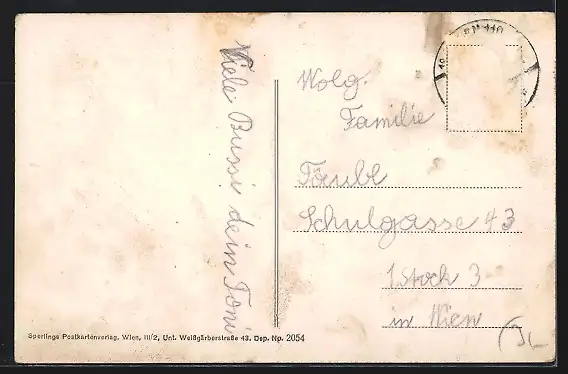 Viele Bussi dein Toni
Wolg.
Familie
Täubl
Schulgasse 43
1 Stock 3
in Wien
Sperlings Postkartenverlag, Wien, III/2, Unt. Weißgärberstraße 43. Dep. Np. 2054